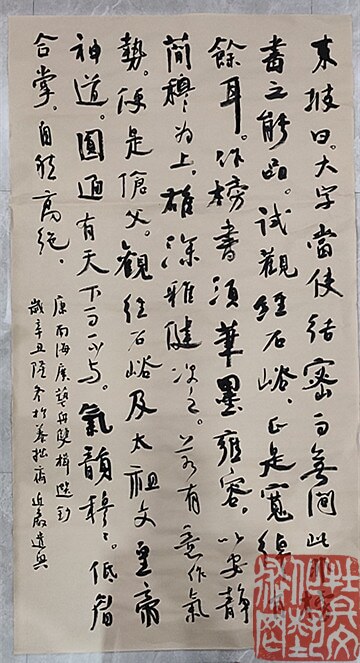 東坡曰。大字當使結密而無間此非榜
書之能品。試觀經石峪。正是寬綽有
餘耳。作榜書須筆墨雍容。以安靜
簡穆为上。雄深雅健次之。若有意作氣
勢。便是傖父。觀經石峪及太祖文皇帝
神道。圓通有天下而不与。氣韻穆穆。低眉
合掌。自然高絕、
康南海廣藝舟雙楫選鈔
歲辛丑隆冬於養拙齋